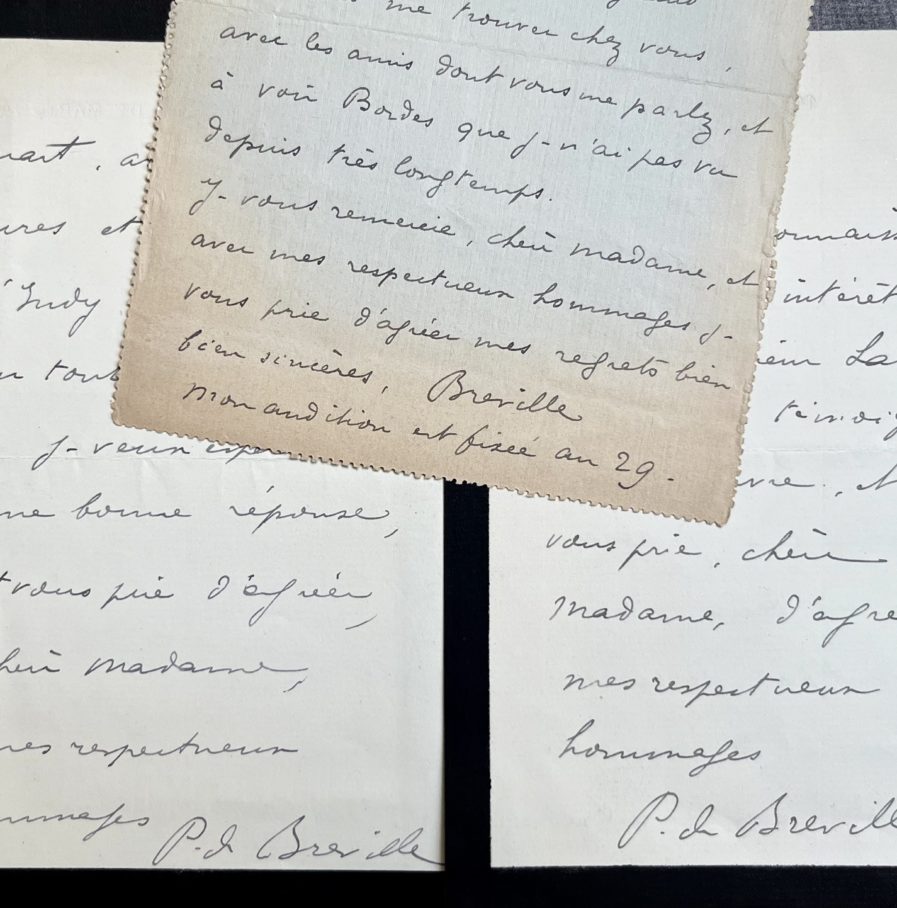 me trouver chez vous,
avec les amis dont vous me parlez, et
à voir Bordes que je n'ai pas vu
depuis très longtemps.
Je vous remercie, chère madame, et
avec mes respectueux hommages je
vous prie d'agréer mes regrets bien
bien sincères, Breville
mon audition est fixée au 29.
et
d'Indy
tout
Je veux
bonne réponse,
vous prie d'agréer,
madame,
mes respectueux
P. de Breville
intérêt
La
et
vous prie, chère
Madame, d'agré
mes respectueux
hommages
P. de Brevill